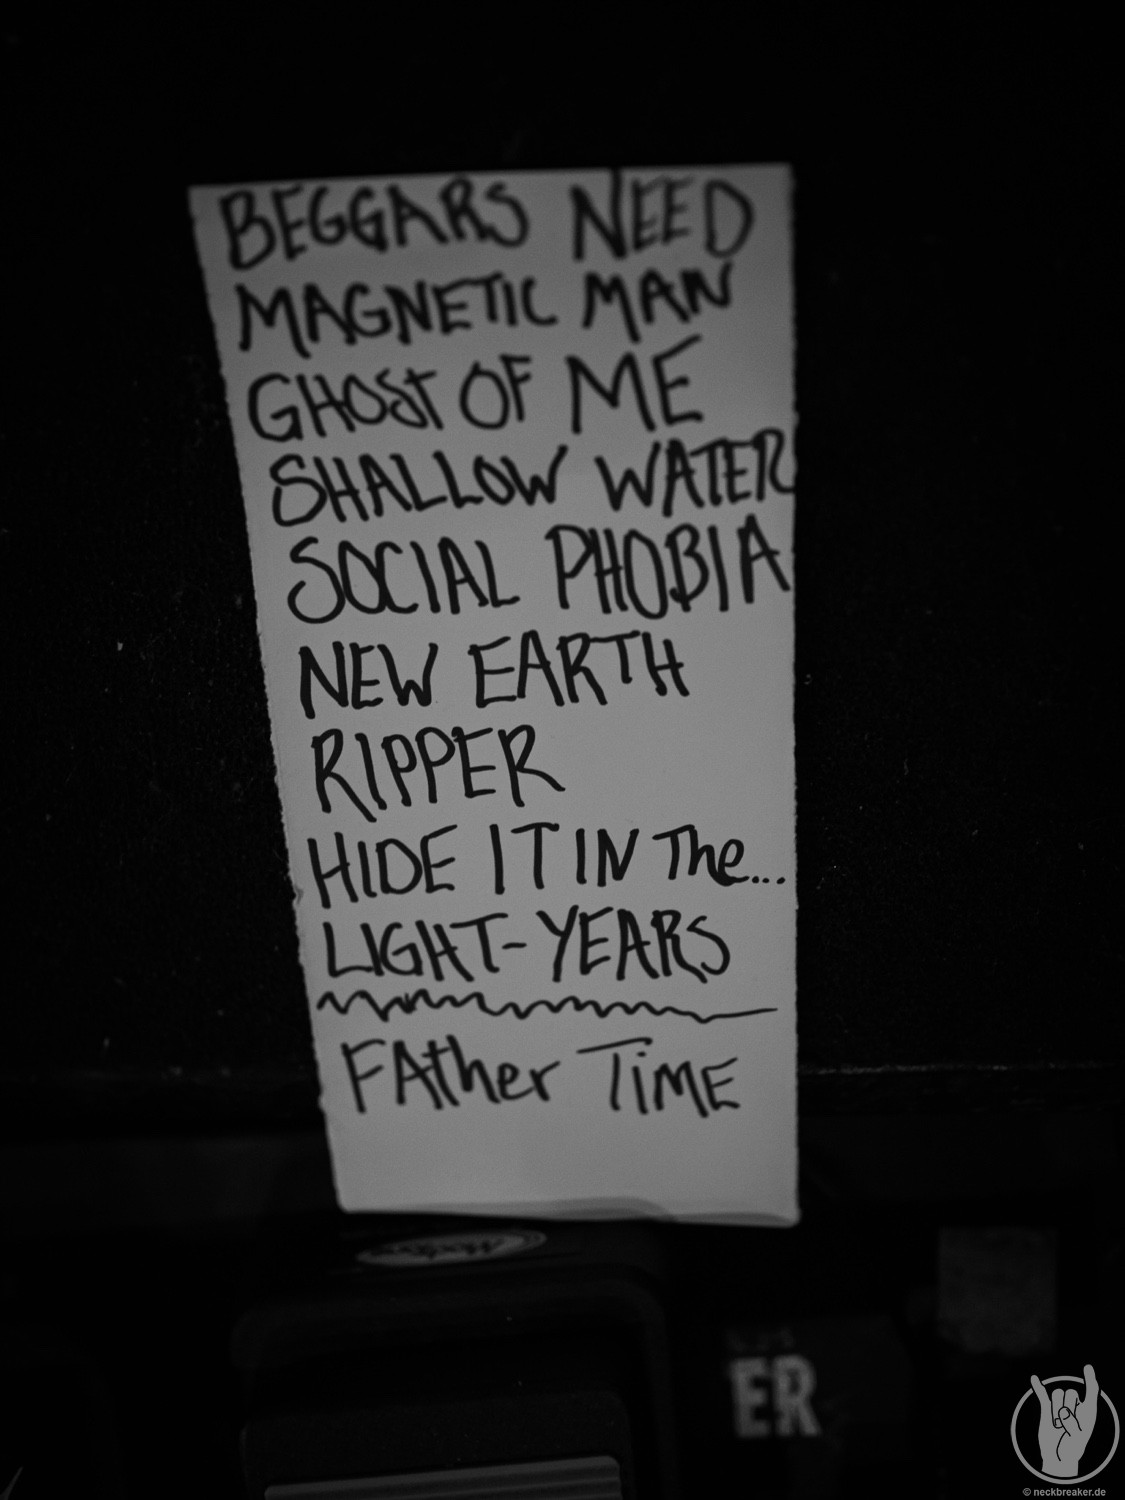 BEGGARS NEED
MAGNETIC MAN
GHOST OF ME
SHALLOW WATER
SOCIAL PHOBIA
NEW EARTH
RIPPER
HIDE IT IN The...
LIGHT-YEARS
FAther TiME
ER
© neckbreaker.de